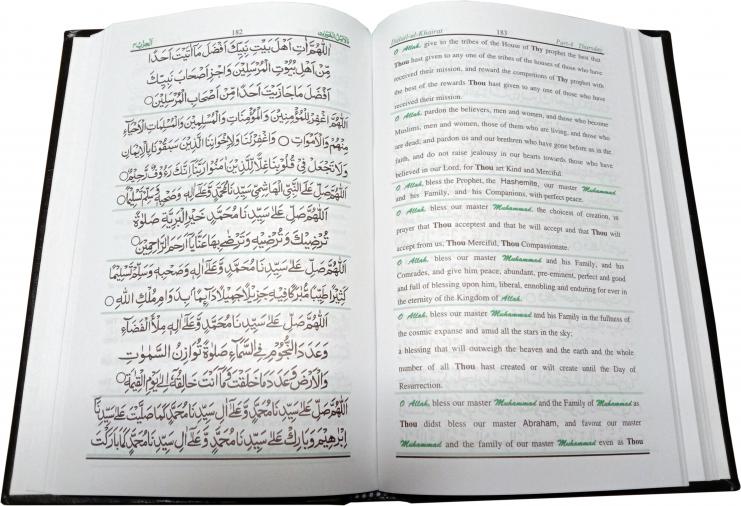 182
اَللّٰهُمَّ اٰتِ اَهْلَ بَيْتِ نَبِيِّكَ اَفْضَلَ مَآ اٰتَيْتَ اَحَدًا
مِّنْ اَهْلِ بُيُوْتِ الْمُرْسَلِيْنَ وَاجْزِ اَصْحَابَ نَبِيِّكَ
اَفْضَلَ مَا جَازَيْتَ اَحَدًا مِّنْ اَصْحَابِ الْمُرْسَلِيْنَ ○
اَللّٰهُمَّ اغْفِرْ لِلْمُؤْمِنِيْنَ وَالْمُؤْمِنَاتِ وَالْمُسْلِمِيْنَ وَالْمُسْلِمَاتِ الْاَحْيَآءِ
مِنْهُمْ وَالْاَمْوَاتِ ○ وَاغْفِرْ لَنَا وَلِاِخْوَانِنَا الَّذِيْنَ سَبَقُوْنَا بِالْاِيْمَانِ
وَلَا تَجْعَلْ فِيْ قُلُوْبِنَا غِلًّا لِّلَّذِيْنَ اٰمَنُوْا رَبَّنَآ اِنَّكَ رَءُوْفٌ رَّحِيْمٌ ○
اَللّٰهُمَّ صَلِّ عَلَى النَّبِيِّ الْهَاشِمِيِّ سَيِّدِنَا مُحَمَّدٍ وَّعَلٰٓى اٰلِهٖ وَصَحْبِهٖ وَسَلِّمْ تَسْلِيْمًا ○
اَللّٰهُمَّ صَلِّ عَلٰى سَيِّدِنَا مُحَمَّدٍ خَيْرِ الْبَرِيَّةِ صَلٰوةً
تُرْضِيْكَ وَتُرْضِيْهِ وَتَرْضٰى بِهَا عَنَّا يَآ اَرْحَمَ الرَّاحِمِيْنَ ○
اَللّٰهُمَّ صَلِّ عَلٰى سَيِّدِنَا مُحَمَّدٍ وَّعَلٰٓى اٰلِهٖ وَصَحْبِهٖ وَسَلِّمْ تَسْلِيْمًا
كَثِيْرًا طَيِّبًا مُّبَارَكًا فِيْهِ جَزِيْلًا جَمِيْلًا دَآئِمًا بِدَوَامِ مُلْكِ اللّٰهِ ○
اَللّٰهُمَّ صَلِّ عَلٰى سَيِّدِنَا مُحَمَّدٍ وَّعَلٰٓى اٰلِهٖ مِلْأَ الْفَضَآءِ
وَعَدَدَ النُّجُوْمِ فِي السَّمَآءِ صَلٰوةً تُوَازِنُ السَّمٰوٰتِ
وَالْاَرْضَ وَعَدَدَ مَا خَلَقْتَ وَمَآ اَنْتَ خَالِقُهٗٓ اِلٰى يَوْمِ الْقِيٰمَةِ ○
اَللّٰهُمَّ صَلِّ عَلٰى سَيِّدِنَا مُحَمَّدٍ وَّعَلٰٓى اٰلِ سَيِّدِنَا مُحَمَّدٍ كَمَا صَلَّيْتَ عَلٰى سَيِّدِنَآ
اِبْرٰهِيْمَ وَبَارِكْ عَلٰى سَيِّدِنَا مُحَمَّدٍ وَّعَلٰٓى اٰلِ سَيِّدِنَا مُحَمَّدٍ كَمَا بَارَكْتَ
Dalail-ul-Khairat 183 Part-4 Thursday
O Allah, give to the tribes of the House of Thy prophet the best that
Thou hast given to any one of the tribes of the houses of those who have
received their mission, and reward the companions of Thy prophet with
the best of the rewards Thou hast given to any one of those who have
received their mission.
O Allah, pardon the believers, men and women, and those who become
Muslims, men and women, those of them who are living, and those who
are dead; and pardon us and our brethren who have gone before as in the
faith, and do not raise jealousy in our hearts towards those who have
believed in our Lord, for Thou art Kind and Merciful.
O Allah, bless the Prophet, the Hashemite, our master Muhammad
and his Family, and his Companions, with perfect peace.
O Allah, bless our master Muhammad, the choicest of creation, in
prayer that Thou acceptest and that he will accept and that Thou will
accept from us, Thou Merciful, Thou Compassionate.
O Allah, bless our master Muhammad and his Family, and his
Comrades, and give him peace, abundant, pre-eminent, perfect and good
and full of blessing upon him, liberal, ennobling and enduring for ever in
the eternity of the Kingdom of Allah.
O Allah, bless our master Muhammad and his Family in the fullness of
the cosmic expanse and amid all the stars in the sky;
a blessing that will outweigh the heaven and the earth and the whole
number of all Thou hast created or will create until the Day of
Resurrection.
O Allah, bless our master Muhammad and the Family of Muhammad as
Thou didst bless our master Abraham, and favour our master
Muhammad and the family of our master Muhammad even as Thou